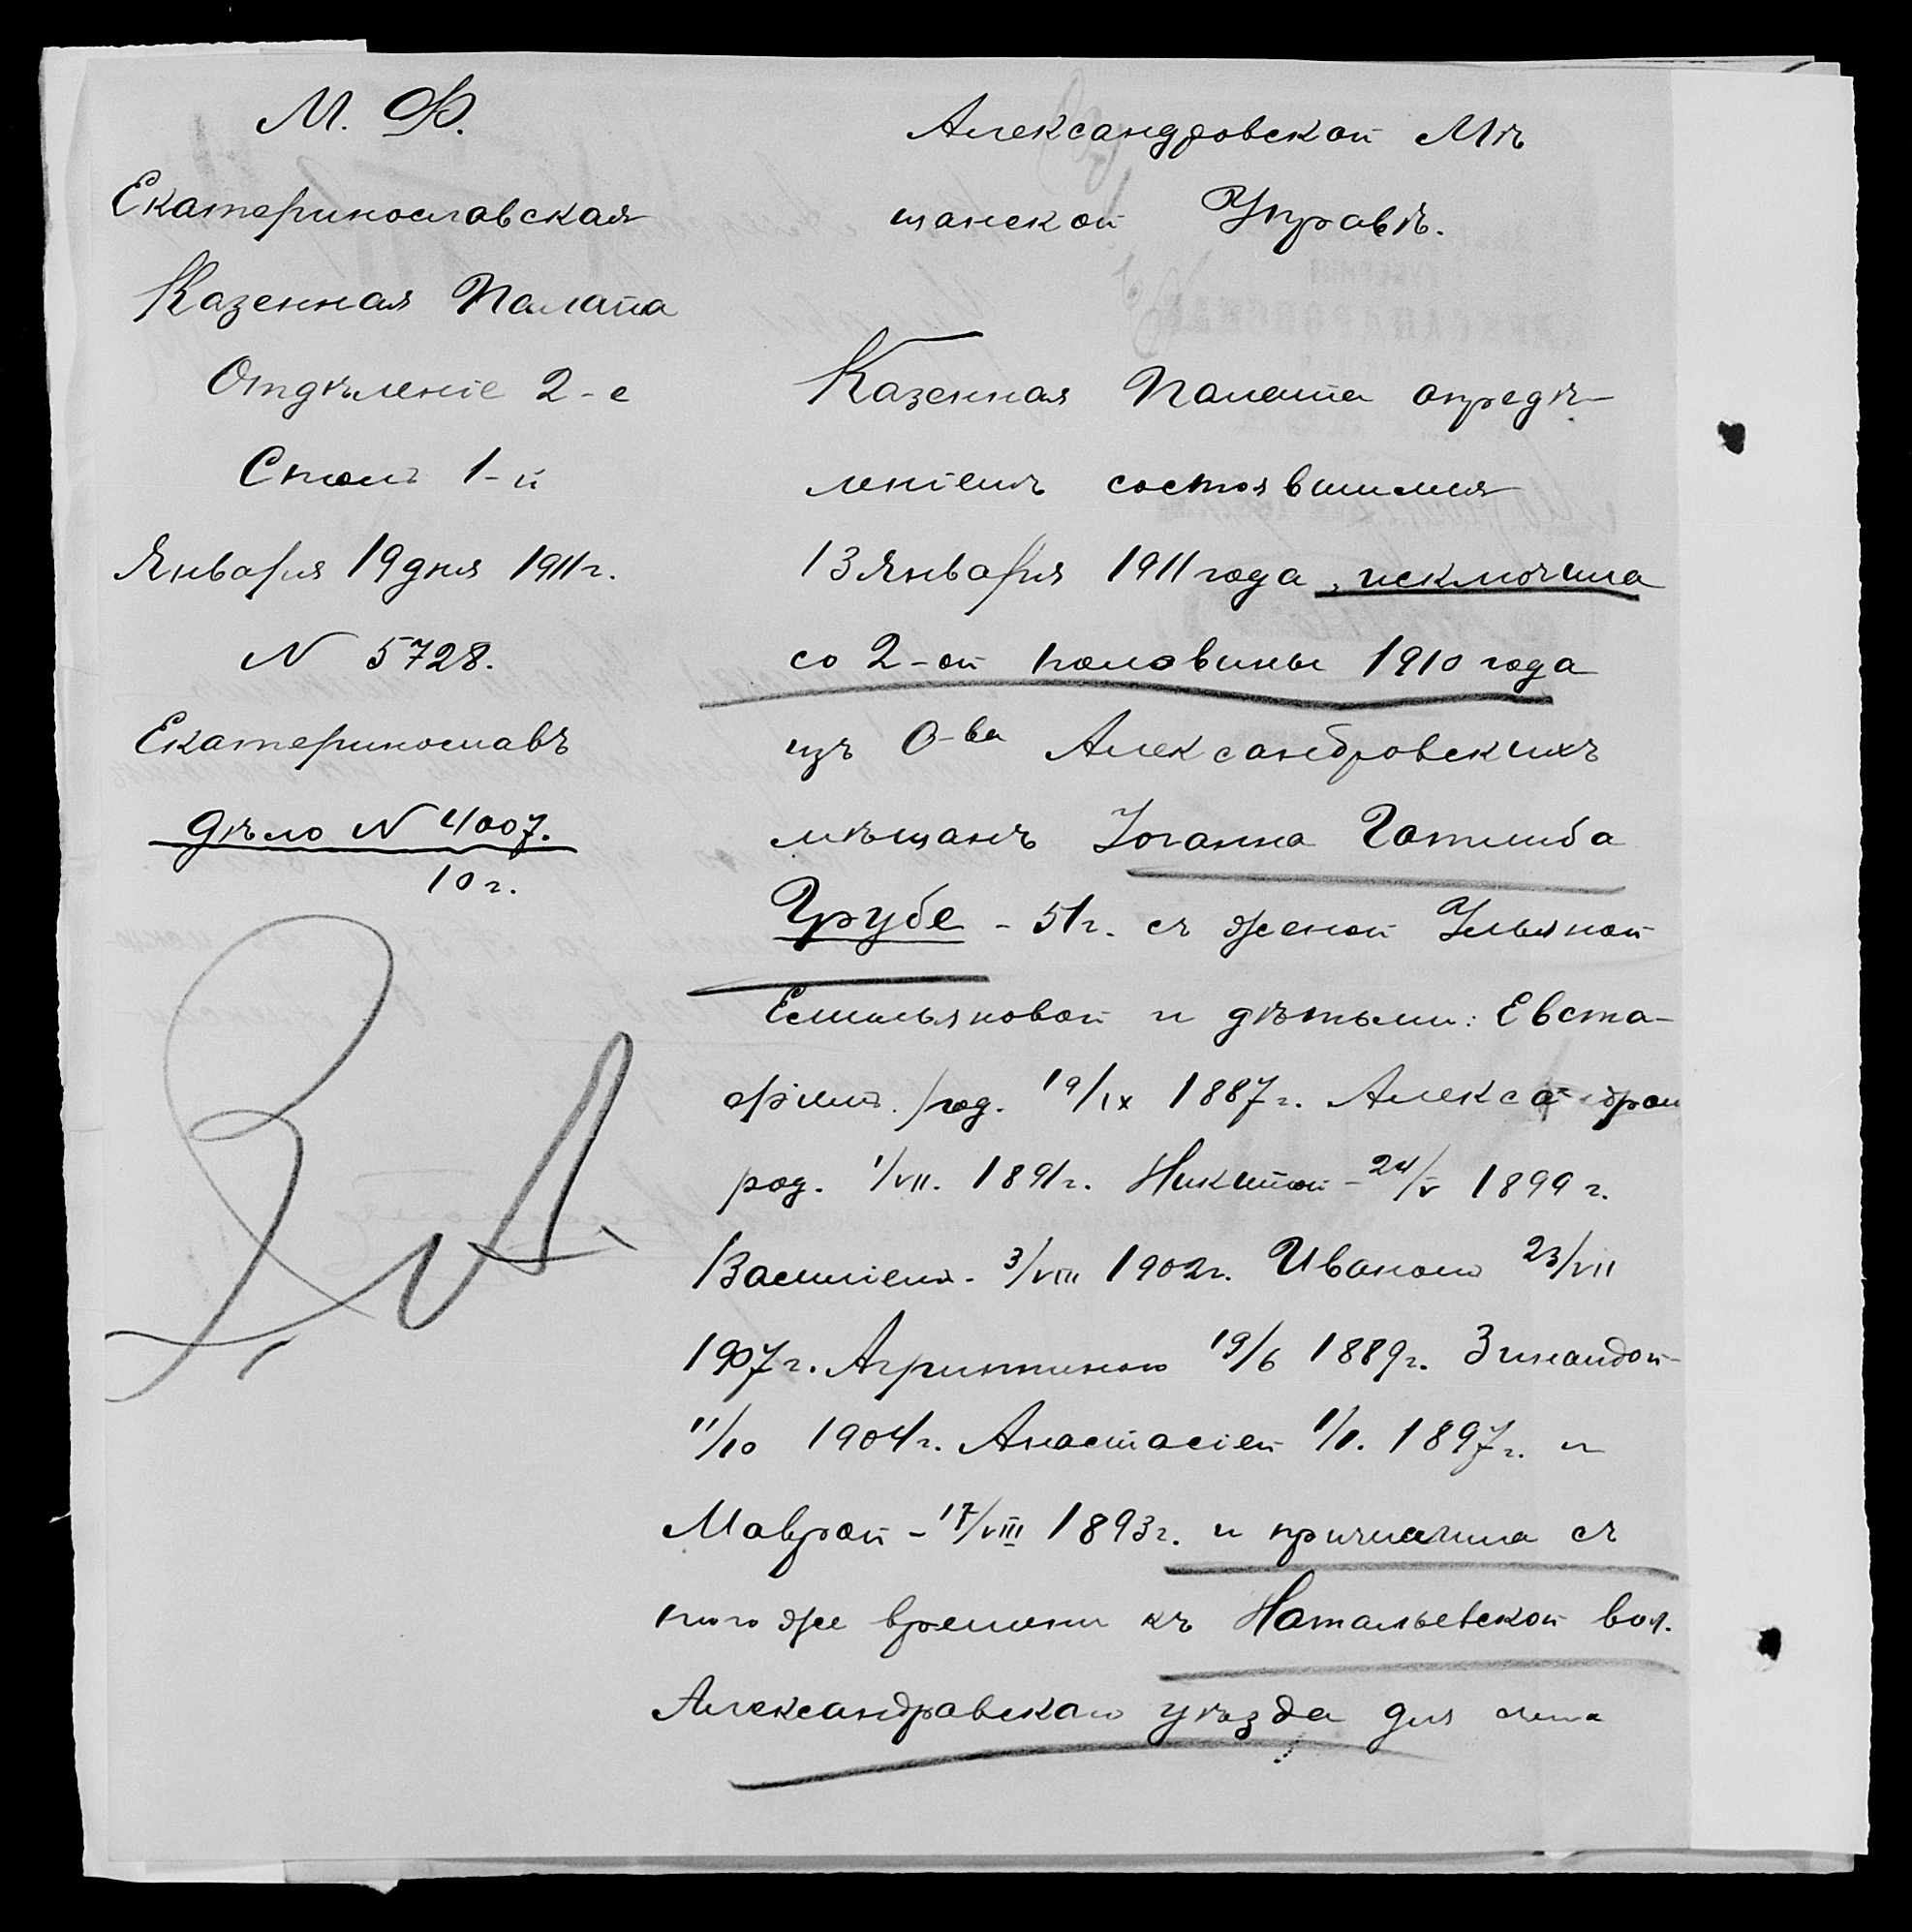 М. Ф.
Екатеринославская
Казенная Палата
Отдѣленіе 2-е
Столъ 1-й
Января 19 дня 1911 г.
N 5728.
Екатеринославъ
дѣло N 4007.
10 г.
Александровской Мѣ
щанской Управѣ.
Казенная Палата опредѣ-
леніемъ состоявшимся
13 Января 1911 года, исключила
со 2-ой половины 1910 года
изъ О-ва Александровскихъ
мѣщанъ Іоганна Готлиба
Грубе - 51 г. съ женой Ульяной
Емельяновой и дѣтьми: Евста-
фіемъ род. 19/IX 1887 г. Александрой
род. 1/VII. 1891 г. Никитой - 24/V 1899 г.
Василіемъ - 3/VIII 1902 г. Иваномъ 23/VII
1907 г. Агриппиною 19/6 1889 г. Зинаидой -
11/10 1904 г. Анастасіей 1/1. 1897 г. и
Маврой - 17/VIII 1893 г. и причислила съ
того же времени къ Натальевской вол.
Александровскаго уѣзда для счета